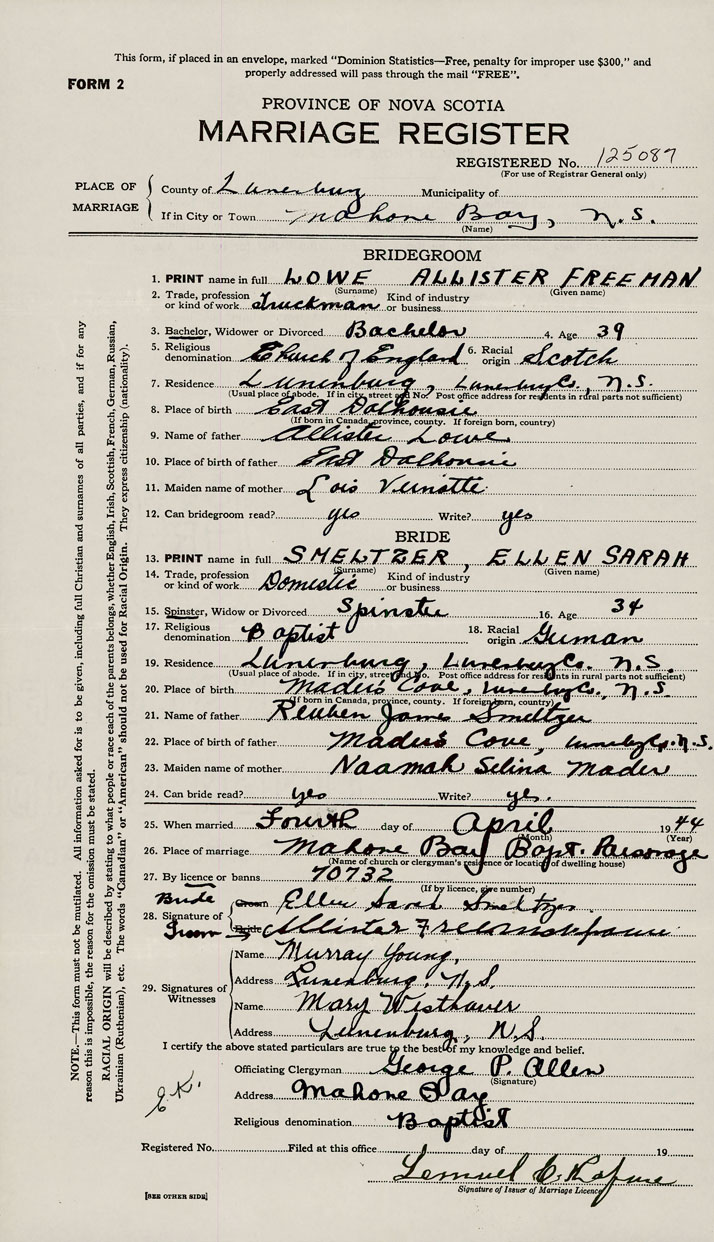 This form, if placed in an envelope, marked "Dominion Statistics—Free, penalty for improper use $300," and
properly addressed will pass through the mail "FREE".
FORM 2
PROVINCE OF NOVA SCOTIA
MARRIAGE REGISTER
REGISTERED No. 125087
(For use of Registrar General only)
PLACE OF MARRIAGE
County of Lunenburg Municipality of
If in City or Town Mahone Bay, N.S.
(Name)
BRIDEGROOM
1. PRINT name in full LOWE ALLISTER FREEMAN
(Surname) (Given name)
2. Trade, profession or kind of work Truckman Kind of industry or business
3. Bachelor, Widower or Divorced Bachelor 4. Age 39
5. Religious denomination Church of England 6. Racial origin Scotch
7. Residence Lunenburg, Lunenburg Co., N.S.
(Usual place of abode. If in city, street and No. Post office address for residents in rural parts not sufficient)
8. Place of birth East Dalhousie
(If born in Canada, province, county. If foreign born, country)
9. Name of father Allister Lowe
10. Place of birth of father East Dalhousie
11. Maiden name of mother Lois Veinotte
12. Can bridegroom read? yes Write? yes
BRIDE
13. PRINT name in full SMELTZER, ELLEN SARAH
(Surname) (Given name)
14. Trade, profession or kind of work Domestic Kind of industry or business
15. Spinster, Widow or Divorced Spinster 16. Age 34
17. Religious denomination Baptist 18. Racial origin German
19. Residence Lunenburg, Lunenburg Co. N.S.
(Usual place of abode. If in city, street and No. Post office address for residents in rural parts not sufficient)
20. Place of birth Maders Cove, Lunenburg Co., N.S.
(If born in Canada, province, county. If foreign born, country)
21. Name of father Reuben James Smeltzer
22. Place of birth of father Maders Cove, Lunenburg Co. N.S.
23. Maiden name of mother Naamah Selina Mader
24. Can bride read? yes Write? yes.
25. When married Fourth day of April 1944
(Month) (Year)
26. Place of marriage Mahone Bay Bapt. Parsonage
(Name of church or clergyman's residence or location of dwelling house)
27. By licence or banns 70732
(If by licence, give number)
28. Signature of
Bride Groom Ellen Sarah Smeltzer
Groom Bride Allister Freeman
29. Signatures of Witnesses
Name Murray Young,
Address Lunenburg, N.S.
Name Mary Westhaver
Address Lunenburg, N.S.
I certify the above stated particulars are true to the best of my knowledge and belief.
Officiating Clergyman George P. Allen
(Signature)
Address Mahone Bay
Religious denomination Baptist
Registered No. Filed at this office day of 19
Lemuel C.
Signature of Issuer of Marriage Licence
[SEE OTHER SIDE]
NOTE.—This form must not be mutilated. All information asked for is to be given, including full Christian and surnames of all parties, and if for any
reason this is impossible, the reason for the omission must be stated.
RACIAL ORIGIN will be described by stating to what people or race each of the parents belongs, whether English, Irish, Scottish, French, German, Russian,
Ukrainian (Ruthenian), etc. The words "Canadian" or "American" should not be used for Racial Origin. They express citizenship (nationality).